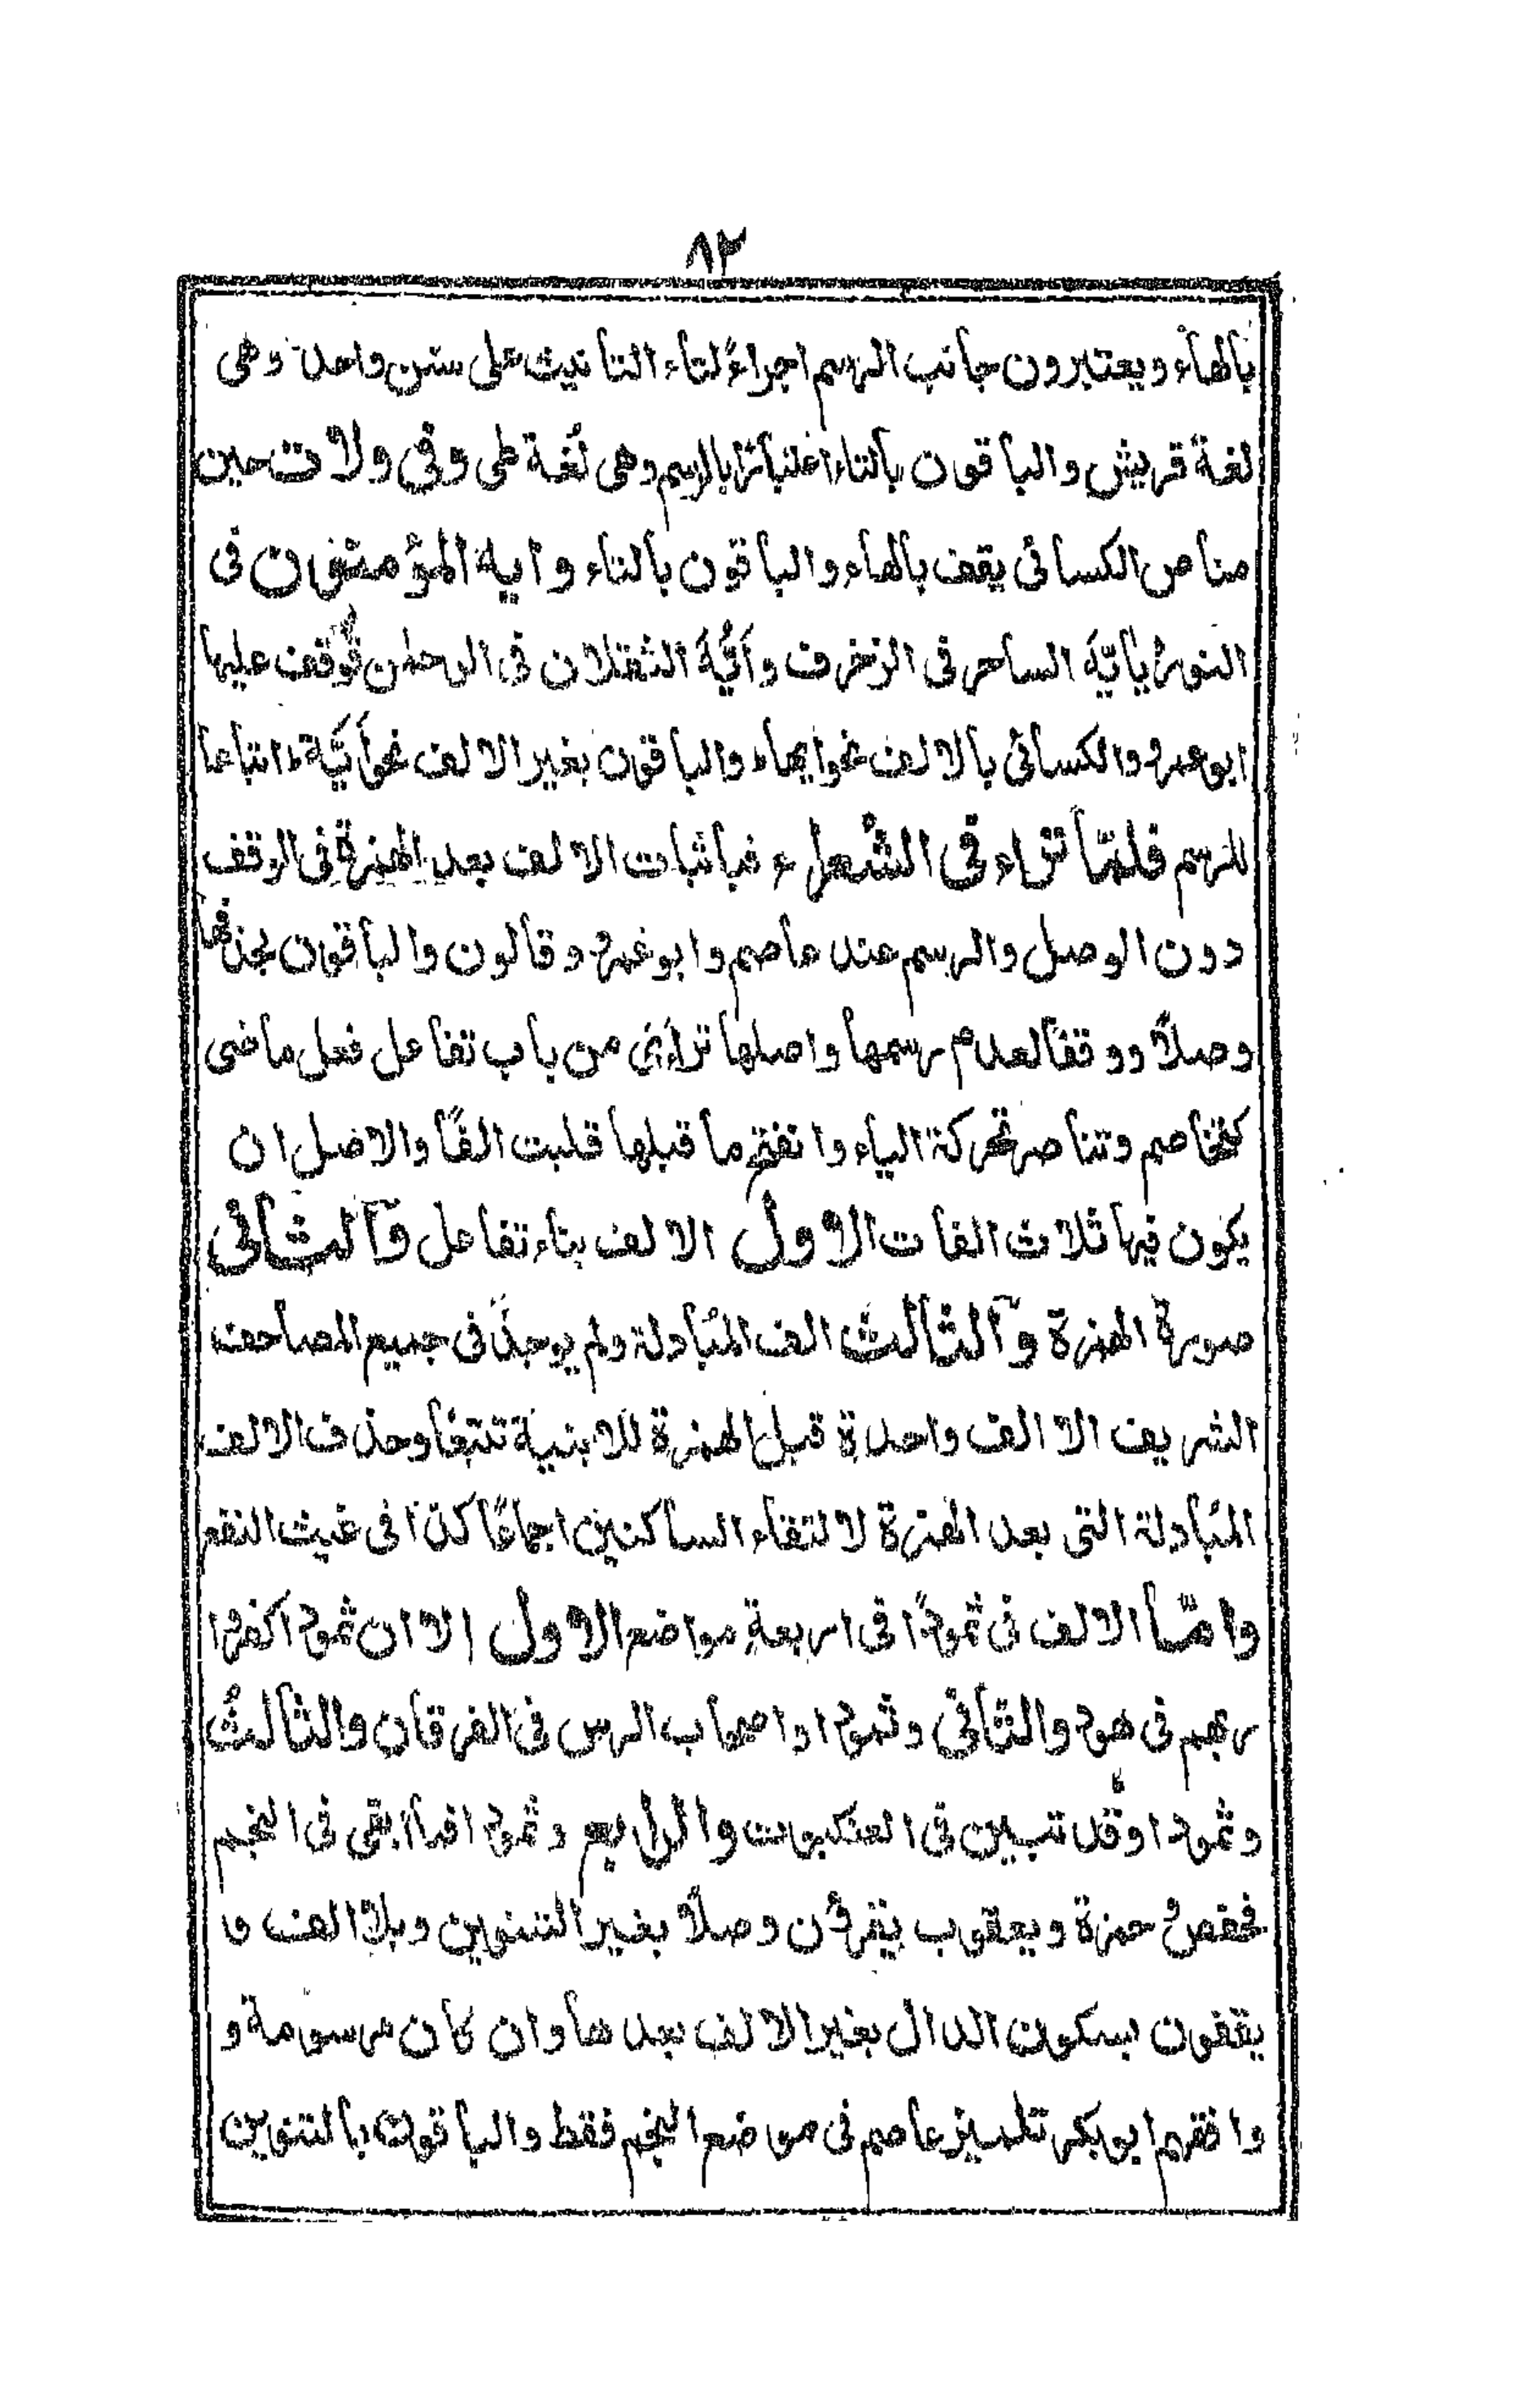 ٨٢
بالهاء ويعتبرون جانب الرسم اجراءً لتاء التانيث على سنن واحد وهى
لغة قريش والباقون بالتاء اعتبارًا بالرسم وهى لُغة طى وفي ولات حين
مناص الكسائى يقف بالهاء والباقون بالتاء وايه المؤمنون فى
النور يٰايّهَ الساحر فى الزخرف وَأيُّهَ الثقلان فى الرحمٰن فوقف عليها
ابوعمرو والكسائى بالالف نحو ايها والباقون بغير الالف نحو أيَّه اتباعا
للرسم فلمّا تراء فى الشعراء فباثبات الالف بعد الهمزة فى الوقف
دون الوصل والرسم عند عاصم وابوعمرو وقالون والباقون بحذفها
وصلاً ووقفًا لعدم رسمها واصلها تراءَىَ من باب تفاعل فعل ماضى
كتخاصم وتناصر تحركة الياء وانفتح ما قبلها قلبت الفًا والاصل ان
يكون فيها ثلاث الفات الاول الالف بناء تفاعل والثانى
صورة الهمزة والثالث الف المُبادلة ولم يوجد فى جميع المصاحف
الشريف الا الف واحدة قبل الهمزة للابنية تتبعًا وحذف الالف
المُبادلة التى بعد الهمزة لالتقاء الساكنين اجماعًا كذا فى غيث النفع
وامّا الالف فى ثمودًا فى اربعة مواضع الاول الا ان ثمودا كفروا
ربهم فى هود والثانى وثمودا واصحاب الرس فى الفرقان والثالث
وثمودا وقد تبين فى العنكبوت والرابع وثمودا فما ابقى فى النجم
فحفص وحمزة ويعقوب يقرؤن وصلاً بغير التنوين وبلا الف و
يقفون بسكون الدال بغير الالف بعدها وان كان مرسومة و
وافقهم ابوبكر تلميذ عاصم فى موضع النجم فقط والباقون بالتنوين